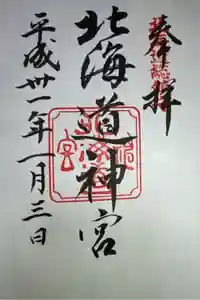 奉拝
北海道神宮
平成卅一年一月三日